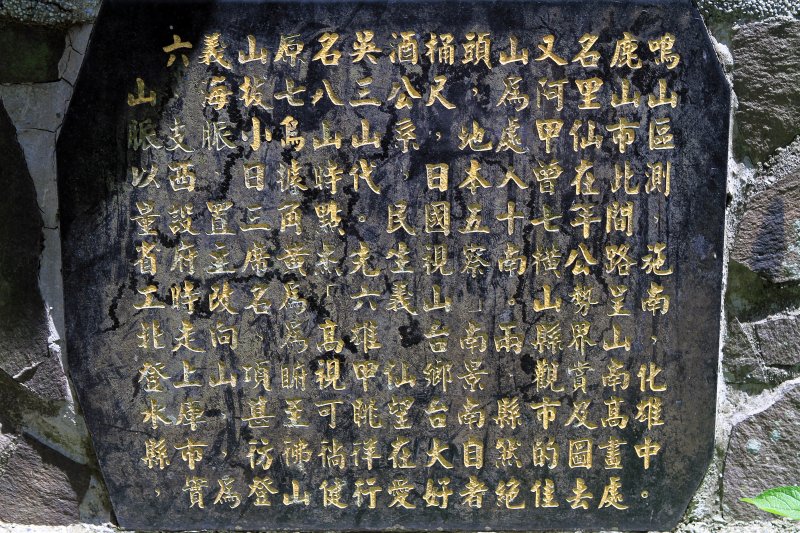 鳴山區測，施南，化雄中。
鹿山市北間路呈山南高畫處
名里仙在年公勢界賞及圖去
又河甲曾七橫山縣觀市的佳
山為處入十南。雨，縣然絕
頭，地本五察」南景南自者
桶尺，日國視山台鄉台火好
酒公系，民生義仙望在愛
吳三山代。克六雄甲眺祥行
名八山時點「高視可徜健
原七烏據角黃為為俯至彿山
山拔小日三席名，項甚彷登
義海脈，置主改向山，為
六支西設府時走上庫市實
山脈以量省工北登水縣，